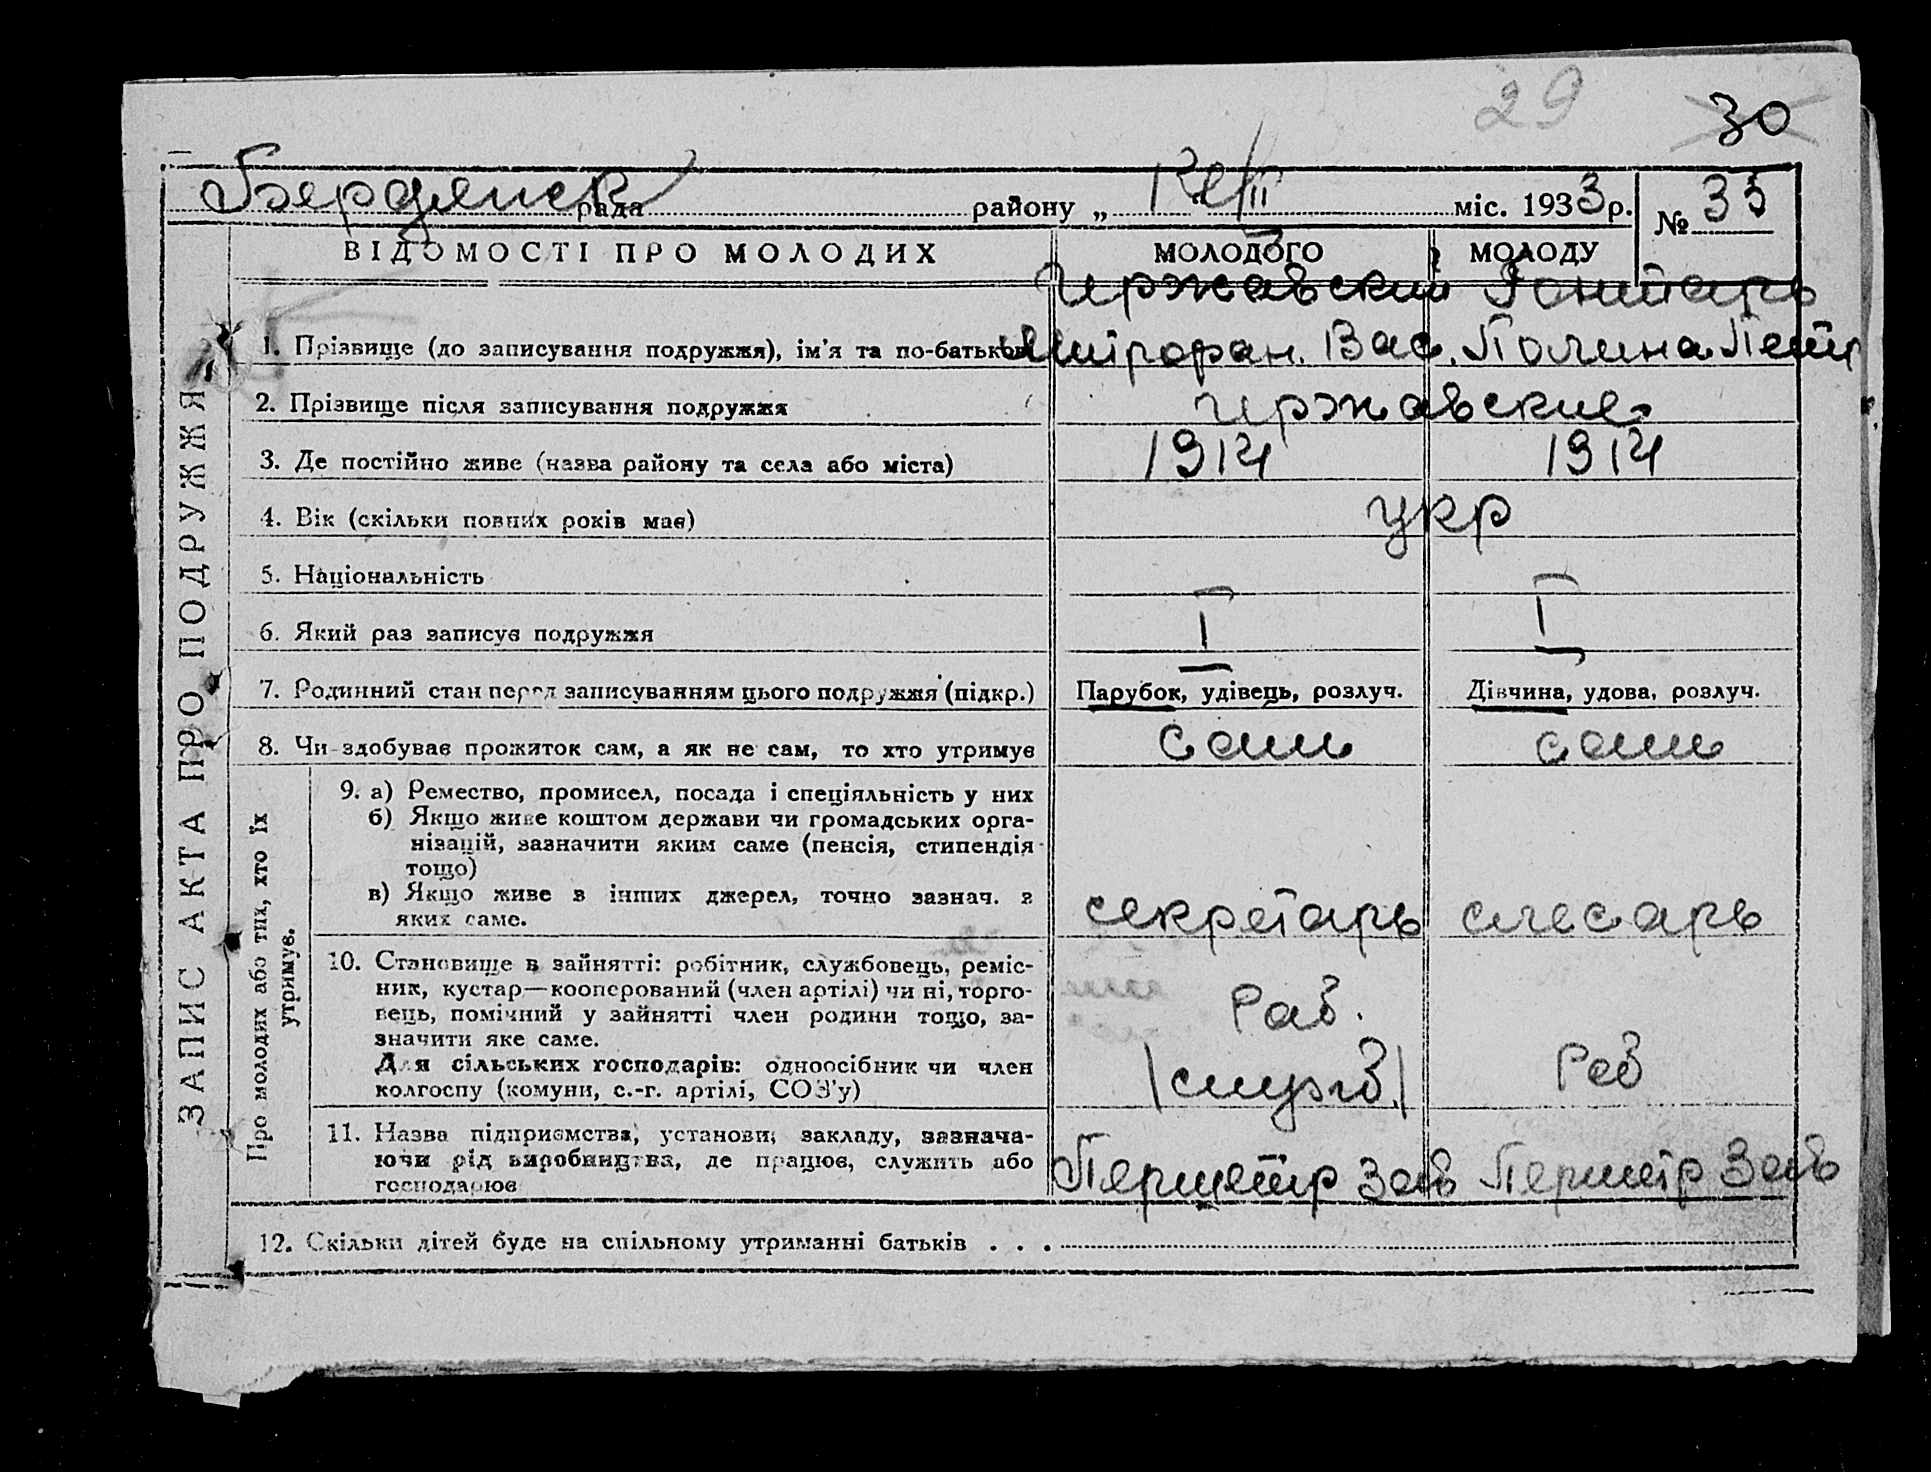 29
30
Бердянск рада району „ " міс. 1933 р. № 35
ВІДОМОСТІ ПРО МОЛОДИХ МОЛОДОГО МОЛОДУ
ЗАПИС АКТА ПРО ПОДРУЖЖЯ
Гонтарь
1. Прізвище (до записування подружжя), ім'я та по-батькові Митрофан. Вас. Полина Петр
2. Прізвище після записування подружжя
3. Де постійно живе (назва району та села або міста) 1914 1914
4. Вік (скільки повних років має) укр
5. Національність
6. Який раз записує подружжя I I
7. Родинний стан перед записуванням цього подружжя (підкр.) Парубок, удівець, розлуч. Дівчина, удова, розлуч.
8. Чи здобуває прожиток сам, а як не сам, то хто утримує сам сам
Про молодих або тих, хто їх утримує.
9. а) Ремество, промисел, посада і спеціяльність у них
б) Якщо живе коштом держави чи громадських орга-
нізацій, зазначити яким саме (пенсія, стипендія
тощо)
в) Якщо живе в інших джерел, точно зазнач. в
яких саме. секретарь слесарь
10. Становище в зайнятті: робітник, службовець, реміс-
ник, кустар—кооперований (член артілі) чи ні, торго-
вець, помічний у зайнятті член родини тощо, за- Раб.
значити яке саме.
Для сільських господарів: одноосібник чи член Раб
колгоспу (комуни, с.-г. артілі, СОЗ'у) (служб.)
11. Назва підприємства, установи, закладу, зазнача-
ючи рід виробництва, де працює, служить або Першетр Зав Першетр Зав
господарює
12. Скільки дітей буде на спільному утриманні батьків . . .